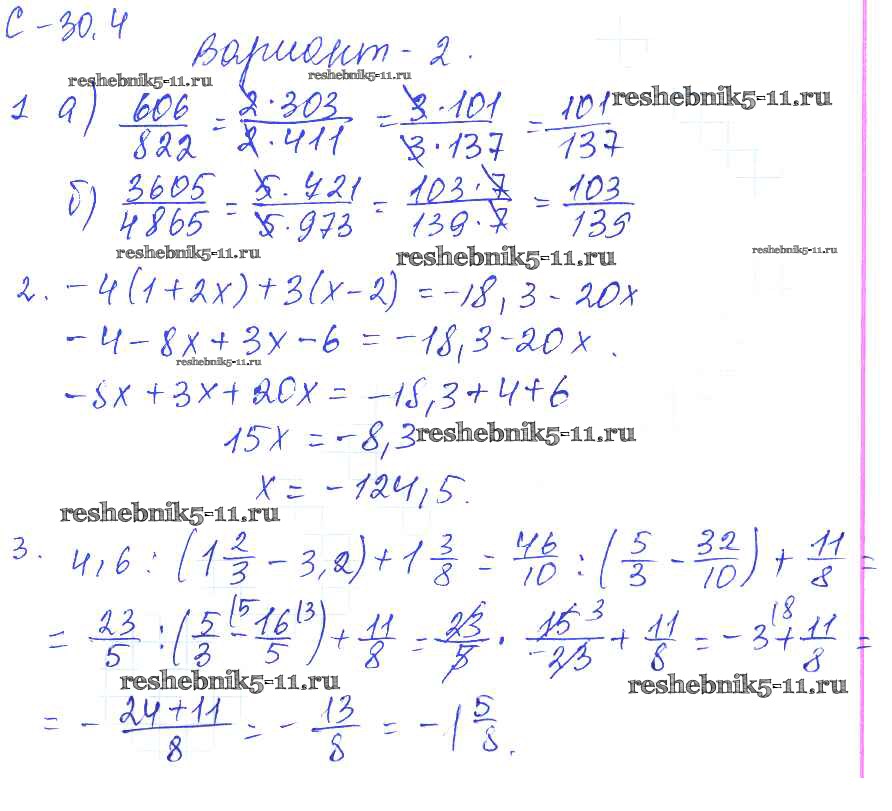 С-30.4
Вариант-2.
reshebnik5-11.ru reshebnik5-11.ru
1 а) 606/822 = 2·303/2·411 = 3·101/3·137 = 101/137 reshebnik5-11.ru
б) 3605/4865 = 5·721/5·973 = 103·7/139·7 = 103/139
reshebnik5-11.ru reshebnik5-11.ru reshebnik5-11.ru
2. -4(1+2x)+3(x-2) = -18,3-20x
-4-8x+3x-6 = -18,3-20x.
reshebnik5-11.ru
-8x+3x+20x = -18,3+4+6
15x = -8,3 reshebnik5-11.ru
x = -124,5.
reshebnik5-11.ru
3. 4,6 : (1 2/3 - 3,2) + 1 3/8 = 46/10 : (5/3 - 32/10) + 11/8 =
= 23/5 : (5/3 (5 - 16/5 (3) + 11/8 = 23/5 · 15 3/-23 + 11/8 = -3 (8 + 11/8 =
reshebnik5-11.ru reshebnik5-11.ru
= - 24+11/8 = - 13/8 = -1 5/8.